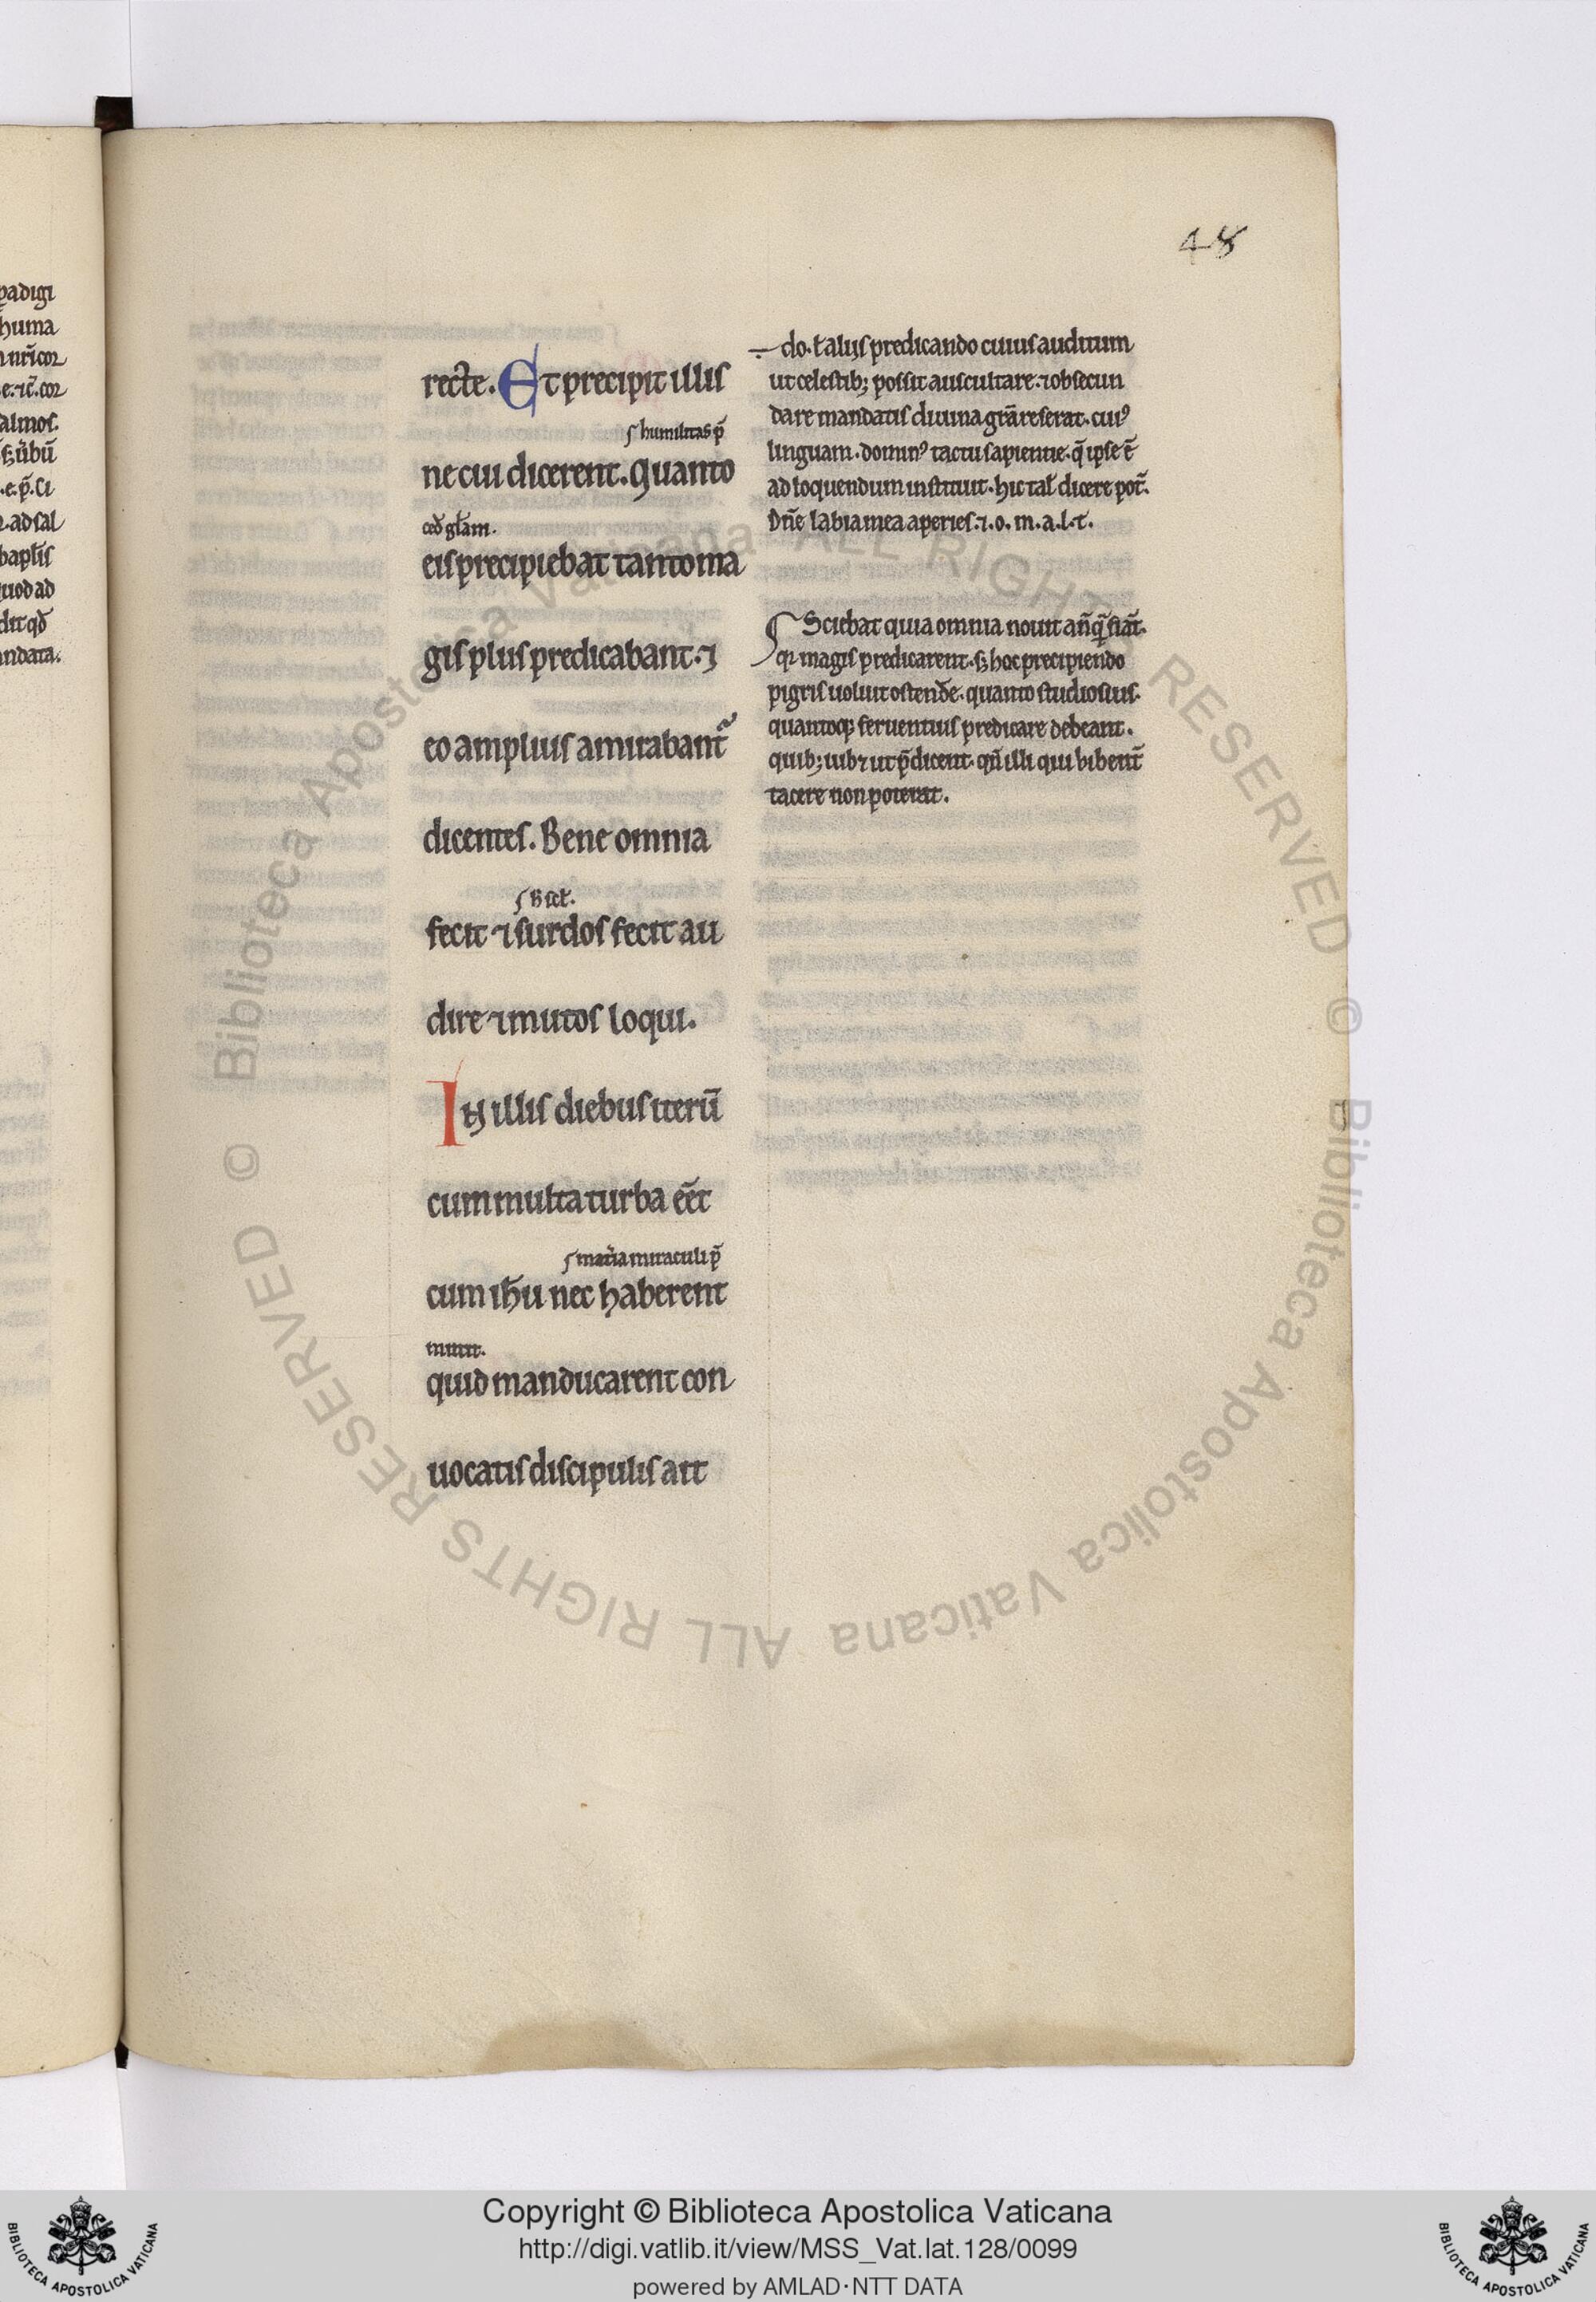 48
recte. Et precipit illis
ſ humilitas p̄
ne cui dicerent. Quanto
ced̄ gl̄am.
eis precipiebat tanto ma
gis plus predicabant. ⁊
eo amplius amirabant᷑
dicentes. Bene omnia
fecit ⁊ surdos fecit au
dire ⁊ mutos loqui.
In illis diebus iterū
cum multa turba eēt
ſ mat̄ia miraculi p̄
cum ih̄u nec haberent
mitit.
quid manducarent con
uocatis discipulis ait
do. ł alijs predicando cuius auditum
ut celestib; possit auscultare. ⁊ obsecun
dare mandatis diuina gr̄a reserat. cuiꝰ
linguam. dominꝰ tactu sapientie. q̄ ipse ē
ad loquendum instituit. hic tal̄ dicere pot̄.
Dn̄e labia mea aperies. ⁊. o. m. a. l. t.
Sciebat quia omnia nouit an̄q̄ fiāt.
qꝛ magis predicarent. s; hoc precipiendo
pigris uoluit ostend̄e. quanto studiosius.
quantoq; feruentius predicare debeant.
quib; iub&ut p̄dicent. qn̄ illi qui
tacere non poterat.
padigi
huma
nr̄i cor
e. ⁊. cor
almos.
s; ūbū
. e. p̄. li
. ad sal
baptis
uod ad
dit qd̄
andata.
© Biblioteca Apostolica Vaticana ALL RIGHTS RESERVED
© Biblioteca Apostolica Vaticana ALL RIGHTS RESERVED
Copyright © Biblioteca Apostolica Vaticana
http://digi.vatlib.it/view/MSS_Vat.lat.128/0099
powered by AMLAD·NTT DATA
BIBLIOTECA APOSTOLICA VATICANA
BIBLIOTECA APOSTOLICA VATICANA